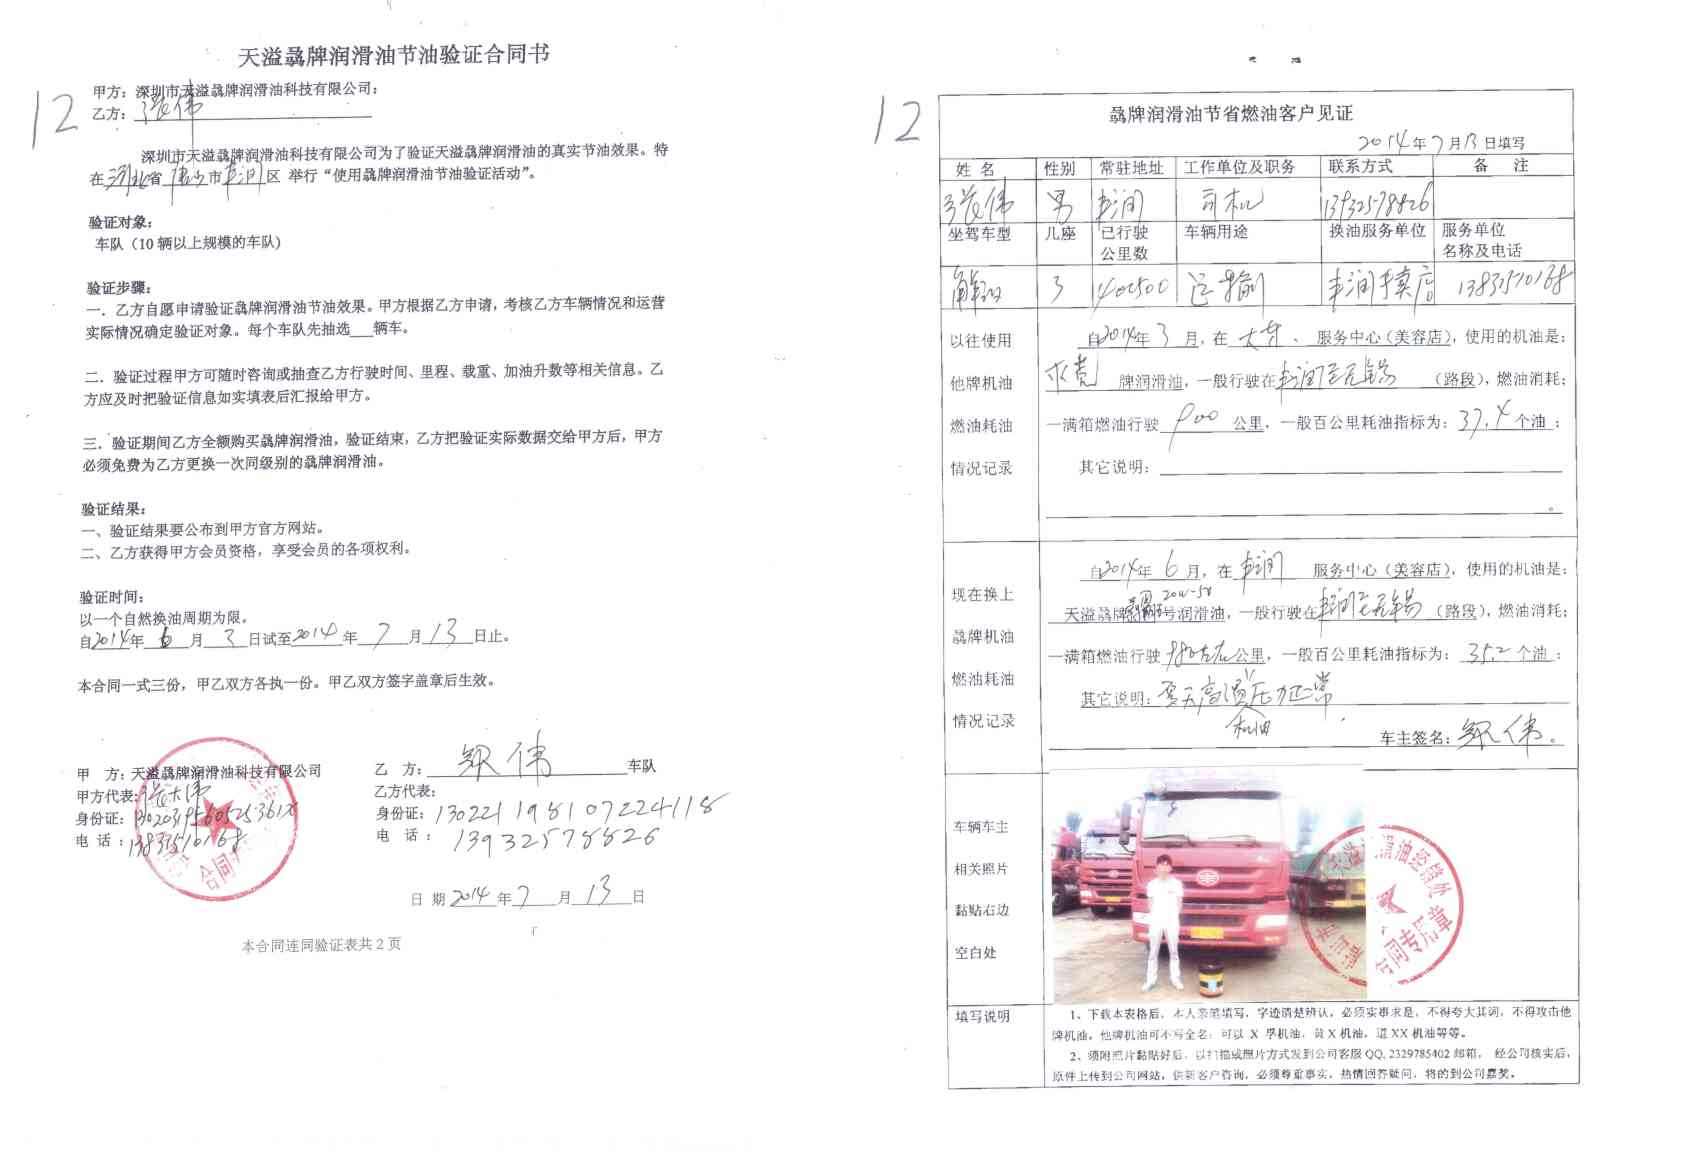 天溢骉牌润滑油节油验证合同书
12
甲方：深圳市天溢骉牌润滑油科技有限公司：
乙方：张伟
深圳市天溢骉牌润滑油科技有限公司为了验证天溢骉牌润滑油的真实节油效果。特
在河北省唐山市丰润区 举行“使用骉牌润滑油节油验证活动”。
验证对象：
车队（10 辆以上规模的车队）
验证步骤：
一．乙方自愿申请验证骉牌润滑油节油效果。甲方根据乙方申请，考核乙方车辆情况和运营
实际情况确定验证对象。每个车队先抽选___辆车。
二．验证过程甲方可随时咨询或抽查乙方行驶时间、里程、载重、加油升数等相关信息。乙
方应及时把验证信息如实填表后汇报给甲方。
三．验证期间乙方全额购买骉牌润滑油，验证结束，乙方把验证实际数据交给甲方后，甲方
必须免费为乙方更换一次同级别的骉牌润滑油。
验证结果：
一、验证结果要公布到甲方官方网站。
二、乙方获得甲方会员资格，享受会员的各项权利。
验证时间：
以一个自然换油周期为限。
自2014年6月3日试至2014年7月13日止。
本合同一式三份，甲乙双方各执一份。甲乙双方签字盖章后生效。
甲 方：天溢骉牌润滑油科技有限公司
甲方代表：
身份证：
电 话：13831510168
合同
乙 方： 伟 车队
乙方代表：
身份证：130221198107224118
电 话：13932578826
日 期 2014年7月13日
本合同连同验证表共 2 页
12
骉牌润滑油节省燃油客户见证
2014年7月13日填写
姓 名 性别 常驻地址 工作单位及职务 联系方式 备 注
张伟 男 丰润 司机 13932578826
坐驾车型 几座 已行驶公里数 车辆用途 换油服务单位 服务单位名称及电话
解放 3 运输 丰润 店 13831510168
以往使用
他牌机油
燃油耗油
情况记录
自2014年3月，在 大车、服务中心（美容店），使用的机油是：
牌润滑油，一般行驶在丰润至无锡（路段），燃油消耗：
一满箱燃油行驶 900 公里，一般百公里耗油指标为：37.4个油；
其它说明：
。
现在换上
骉牌机油
燃油耗油
情况记录
自2014年6月，在丰润 服务中心（美容店），使用的机油是：
20W-50
天溢骉牌 号润滑油，一般行驶在丰润至无锡（路段），燃油消耗：
一满箱燃油行驶980左右公里，一般百公里耗油指标为：35.2个油；
其它说明：夏天高温压力正常
机油
车主签名： 伟。
车辆车主
相关照片
黏贴右边
空白处
润滑油经销处
合同专用章
填写说明
1、下载本表格后，本人亲笔填写，字迹清楚辨认，必须实事求是，不得夸大其词，不得攻击他
牌机油。他牌机油可不写全名；可以 X 孚机油，黄X机油，道XX机油等等。
2、须附照片黏贴好后，以扫描或照片方式发到公司客服 QQ, 2329785402 邮箱， 经公司核实后，
原件上传到公司网站，供新客户咨询，必须尊重事实，热情回答疑问，将的到公司嘉奖。